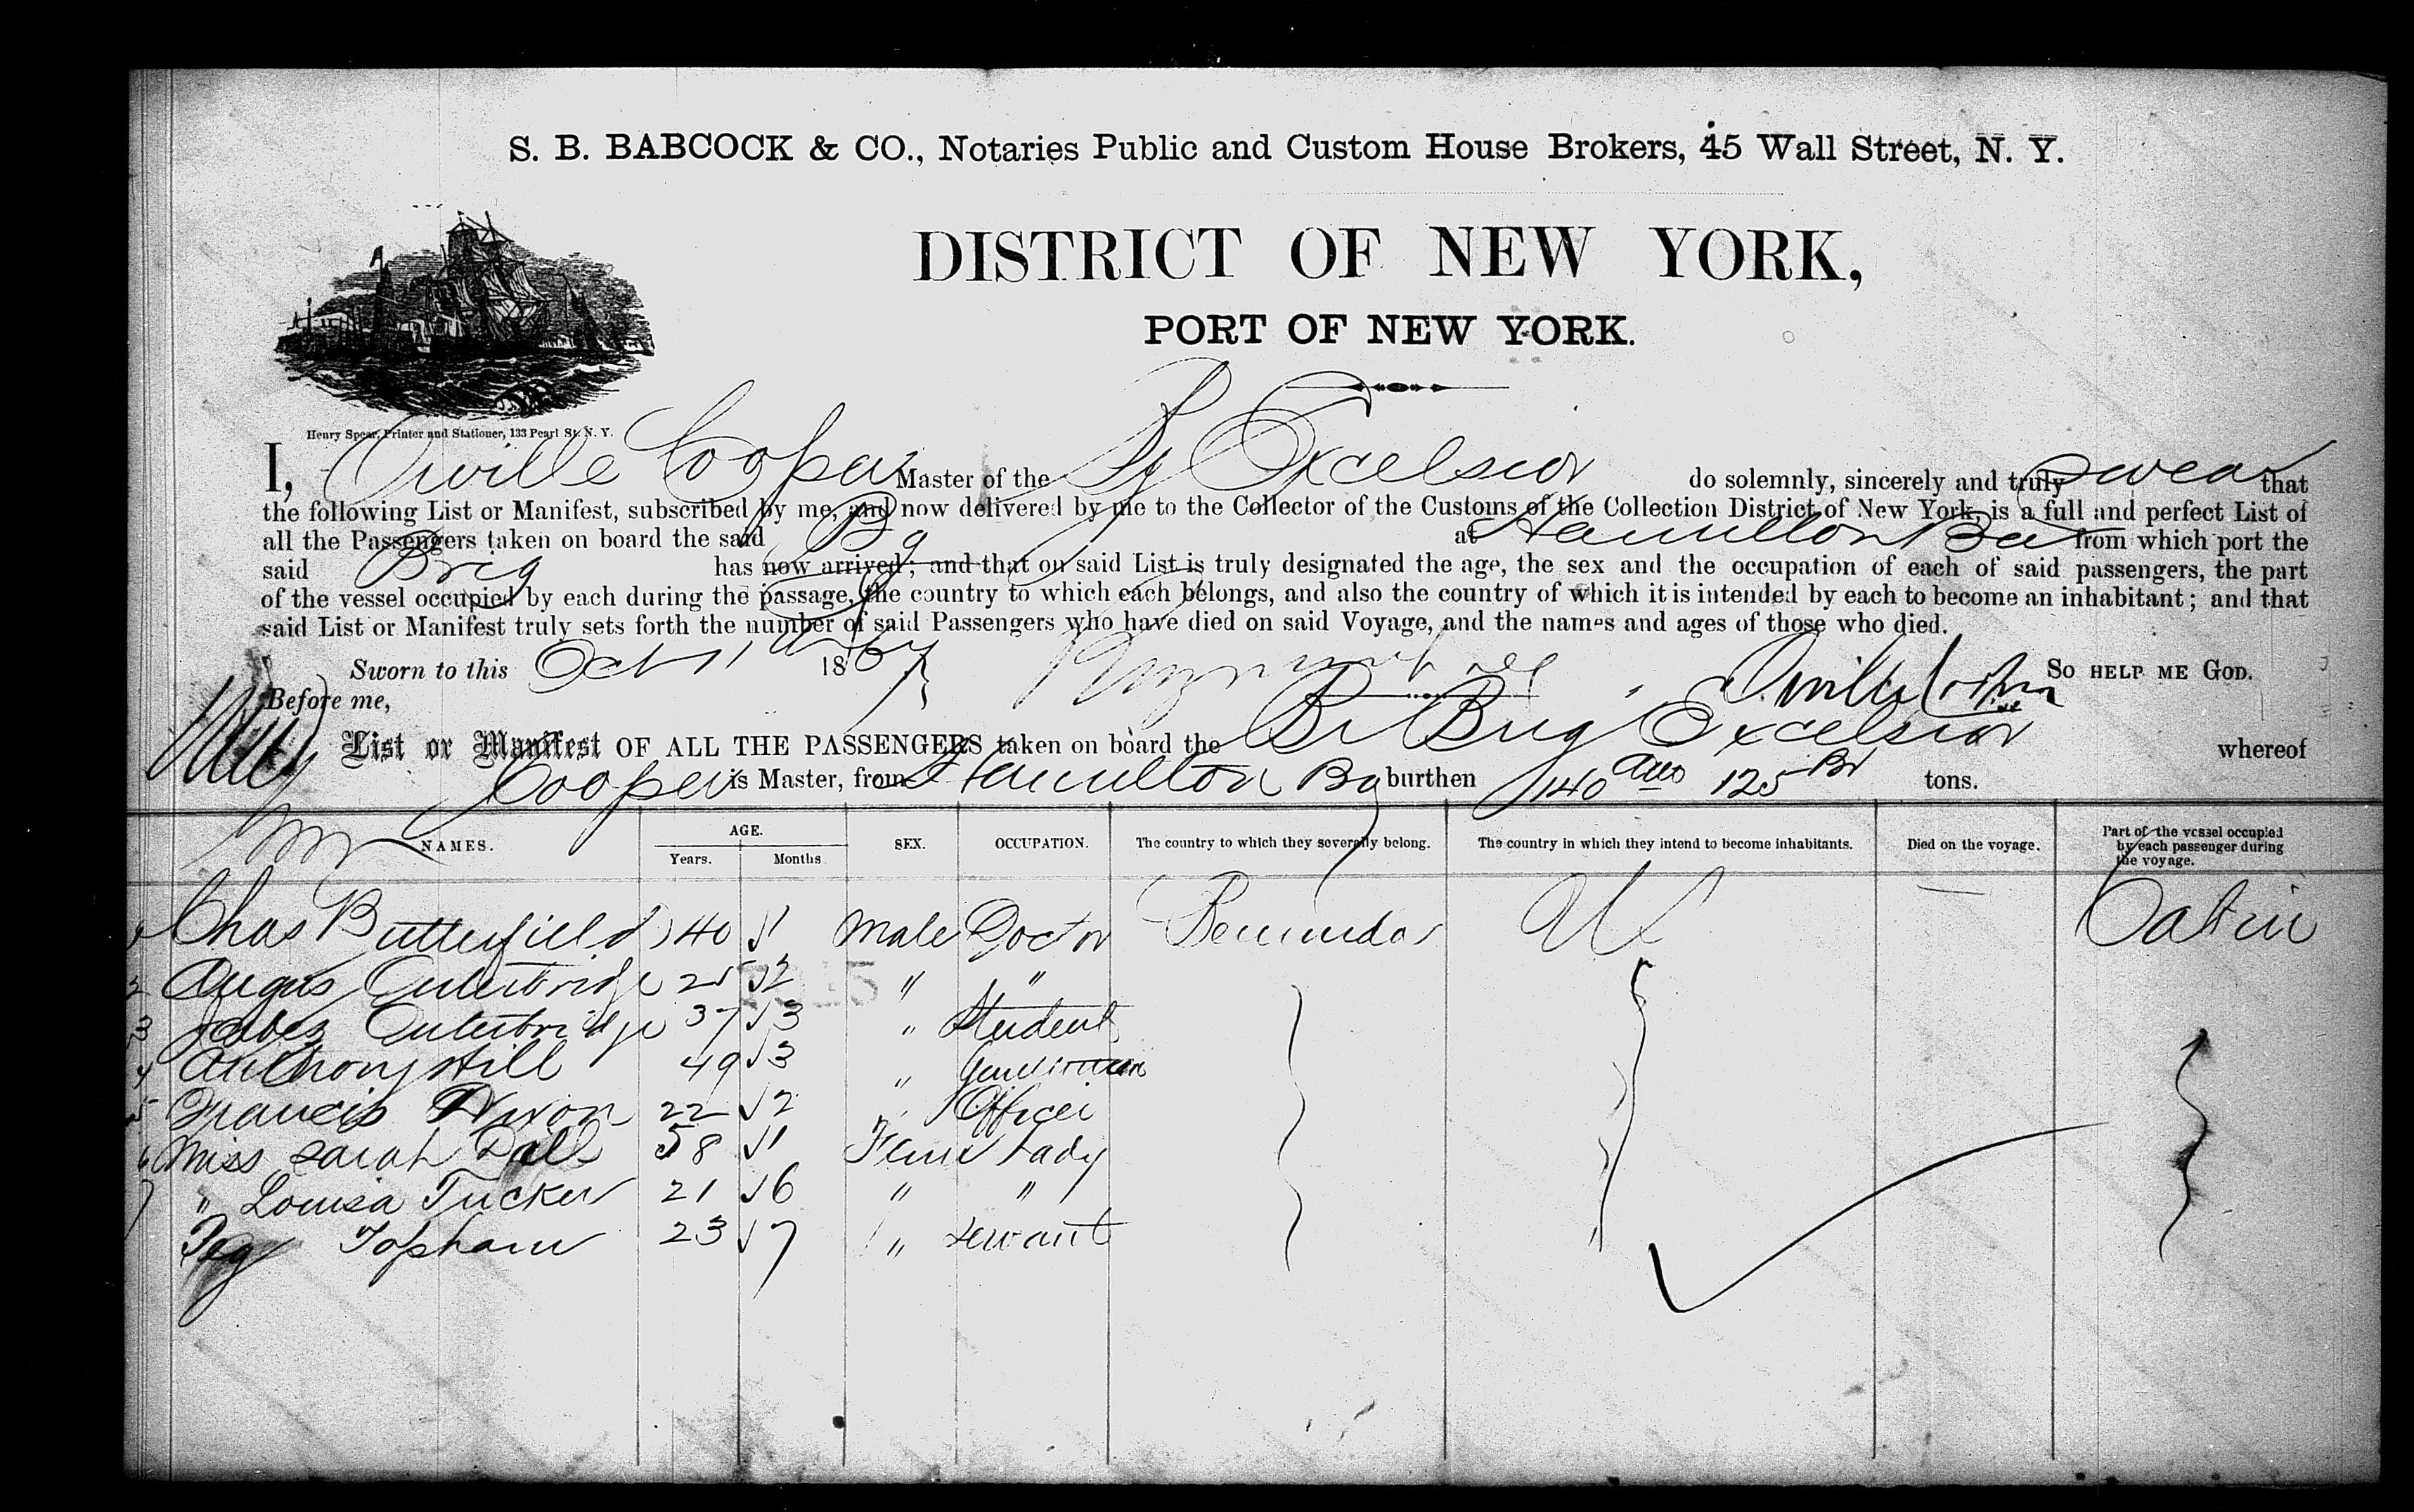 S. B. BABCOCK & CO., Notaries Public and Custom House Brokers, 45 Wall Street, N. Y.
DISTRICT OF NEW YORK,
PORT OF NEW YORK.
Henry Spear, Printer and Stationer, 133 Pearl St. N. Y.
I, Orville Cooper Master of the Bg Excelsior do solemnly, sincerely and truly swear that
the following List or Manifest, subscribed by me, and now delivered by me to the Collector of the Customs of the Collection District of New York, is a full and perfect List of
all the Passengers taken on board the said Bg at Hamilton Ber from which port the
said Brig has now arrived; and that on said List is truly designated the age, the sex and the occupation of each of said passengers, the part
of the vessel occupied by each during the passage, the country to which each belongs, and also the country of which it is intended by each to become an inhabitant; and that
said List or Manifest truly sets forth the number of said Passengers who have died on said Voyage, and the names and ages of those who died.
Sworn to this Oct 1867 SO HELP ME GOD.
Before me, Orville
List or Manifest OF ALL THE PASSENGERS taken on board the Br Brig Excelsior whereof
Cooper is Master, from Hamilton Ba burthen 140 125 Br tons.
NAMES. AGE. Years. Months SEX. OCCUPATION. The country to which they severally belong. The country in which they intend to become inhabitants. Died on the voyage. Part of the vessel occupied by each passenger during the voyage.
1 Chas Butterfield 40 1 Male Doctor Bermudas — Cabin
2 Angus Outerbridge 25 2 " "
3 Jabez Outerbridge 37 3 " Student
4 Anthony Hill 49 3 " Gentleman
5 Francis 22 2 Officer
6 Miss Sarah Dall 58 1 Feme Lady
7 " Louisa Tucker 21 6 " "
Peg Topham 23 7 " servant